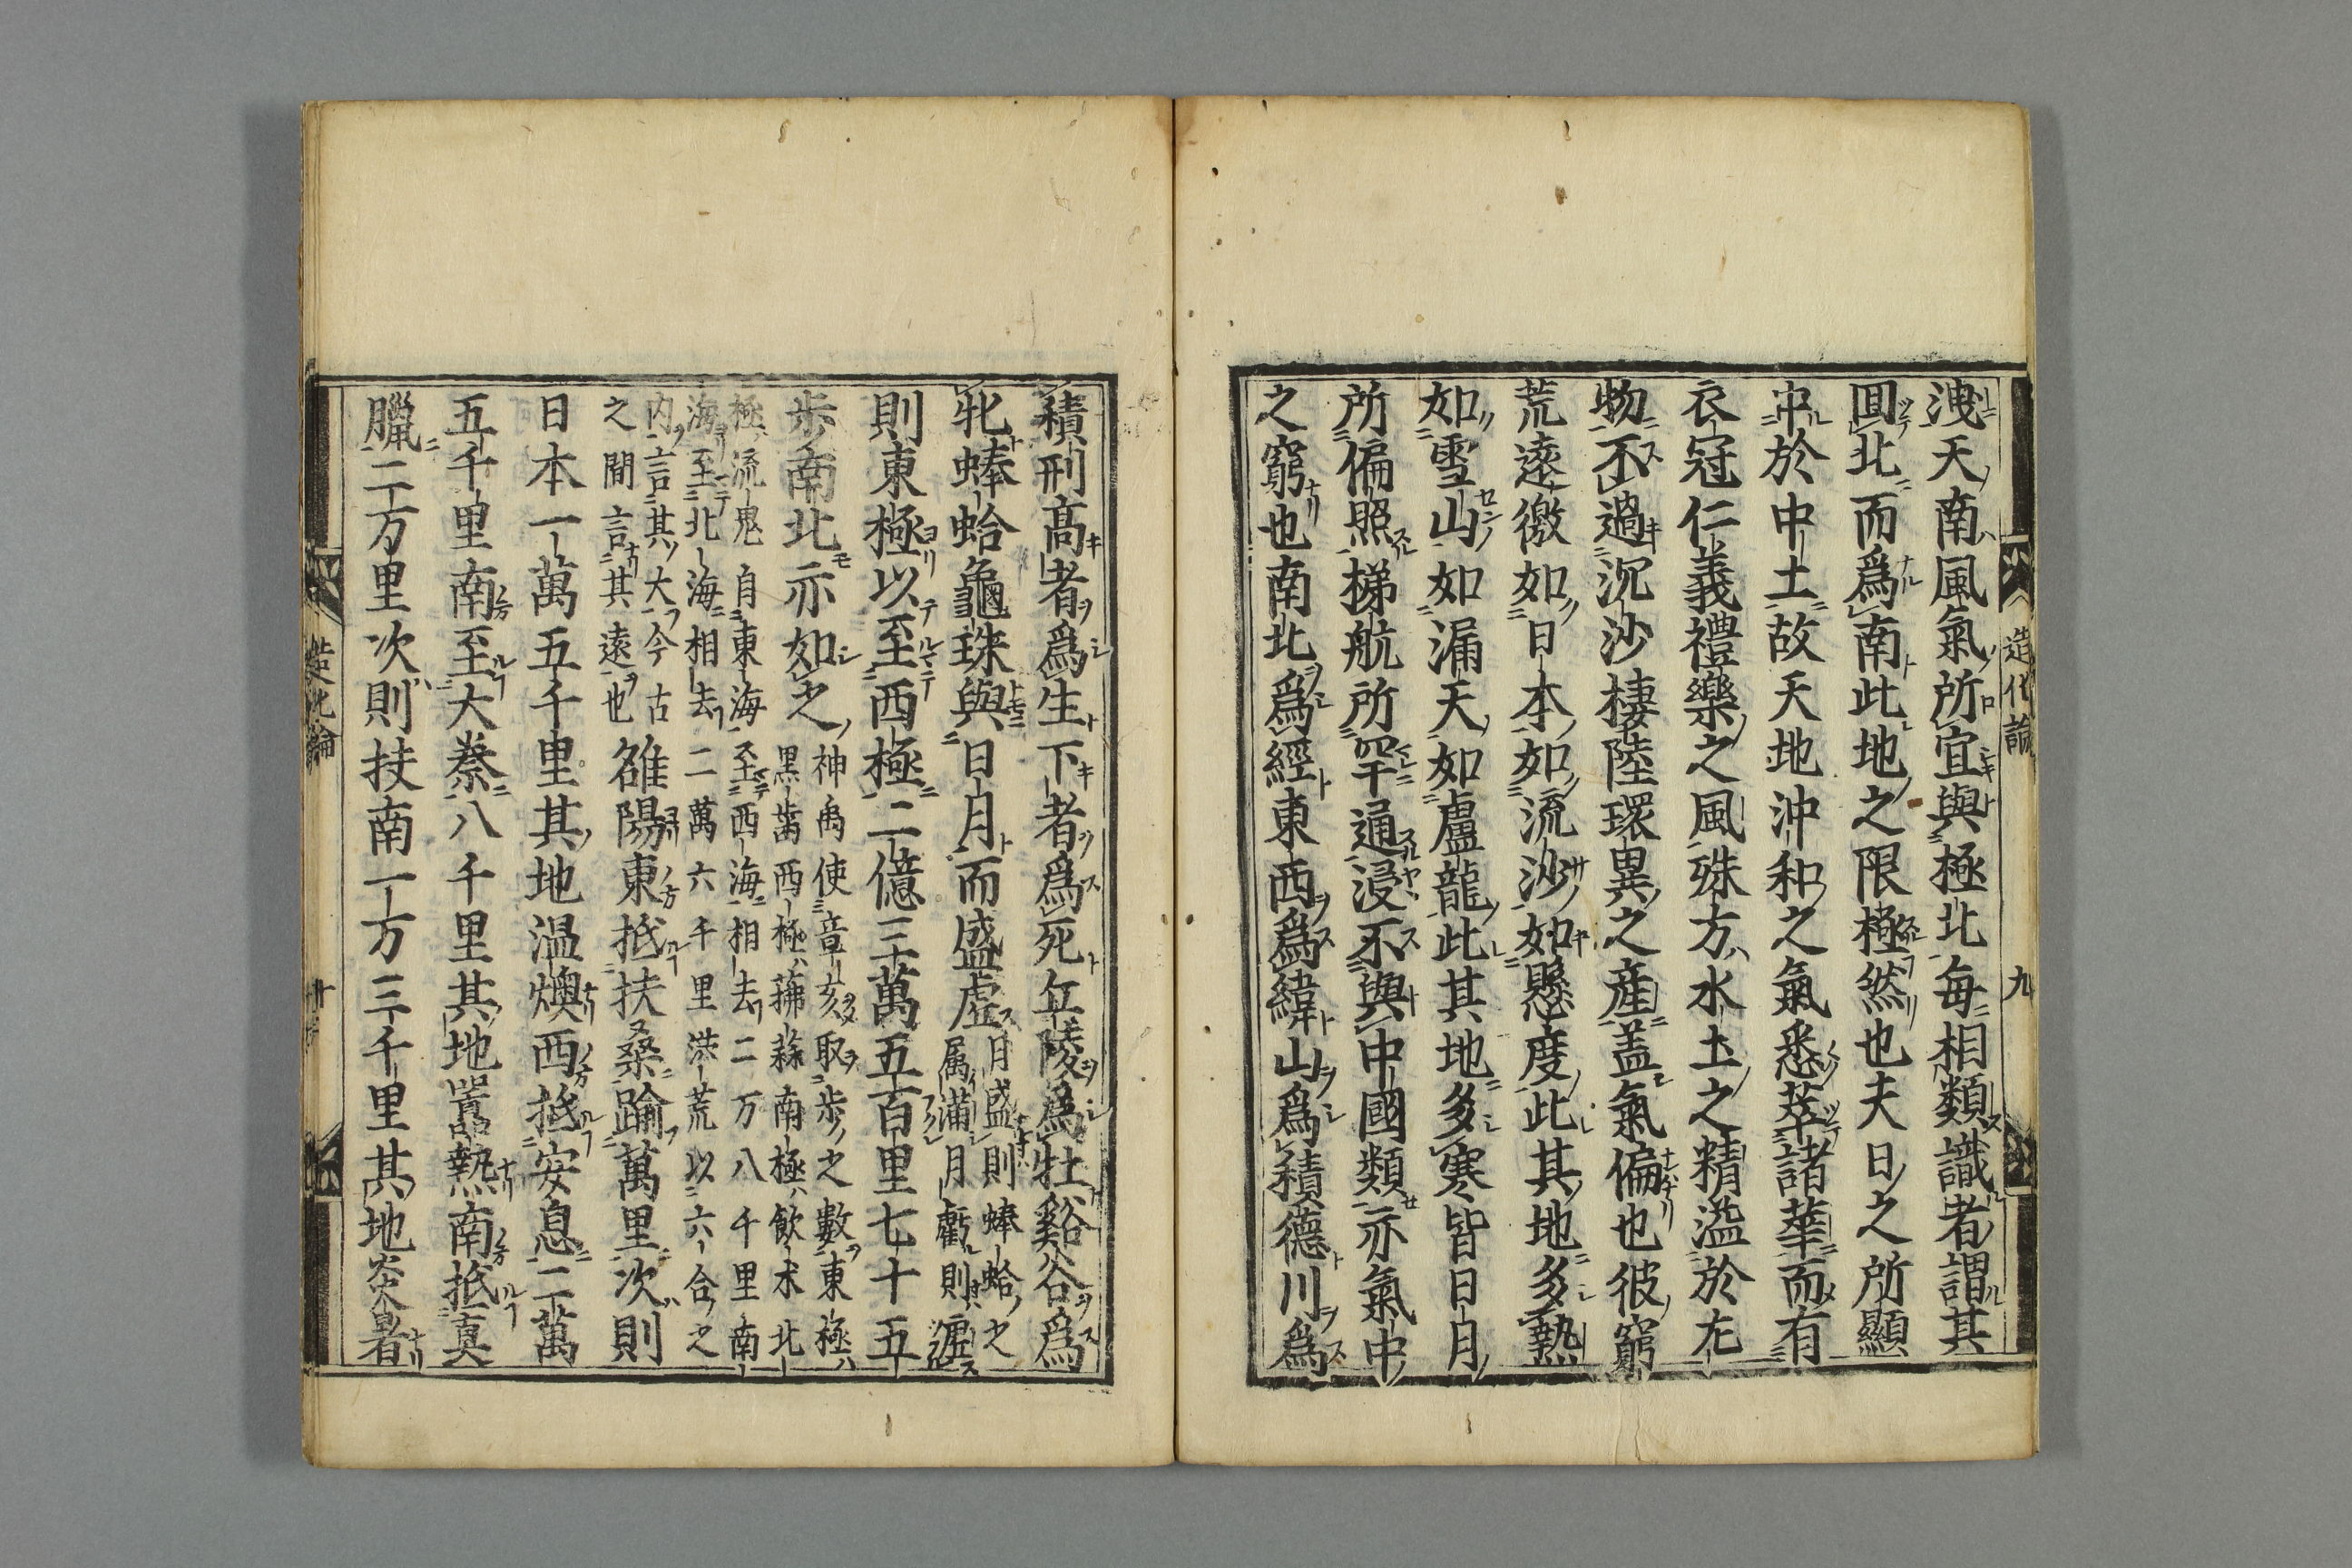 造化論　九
洩天南風氣所宜與極北每相類識者謂其
囬北而爲南此地之限極然也夫日之所顯
中於中土故天地沖和之氣悉萃諸華而有
衣冠仁義禮樂之風殊方水土之精溢於尢
物不過沉沙棲陸環異之産盖氣偏也彼窮
荒遠徼如日本如流沙如懸度此其地多熱
如雪山如漏天如盧龍此其地多寒皆日月
所偏照梯航所罕通浸不與中國類亦氣中
之窮也南北爲經東西爲緯山爲積德川爲
積刑高者爲生下者爲死丘陵爲牡谿谷爲
牝蜯蛤龜珠與日月而盛虛月盛則蜯蛤之
属滿月虧則
則東極以至西極二億三萬五百里七十五
歩南北亦如之神禹使章亥取歩之數東極ハ
黒齒西極ハ南極ハ飲木北
極ハ流鬼自東海至西海相去二万八千里南
海至北海相去二萬六千里洪荒以六合之
内言其大今古
之間言其遠也雒陽東抵扶桑踰萬里次則
日本一萬五千里其地温燠西抵安息二萬
五千里南至大秦八千里其地暑熱南抵真
臘二万里次則扶南一万三千里其地炎暑
造化論　十